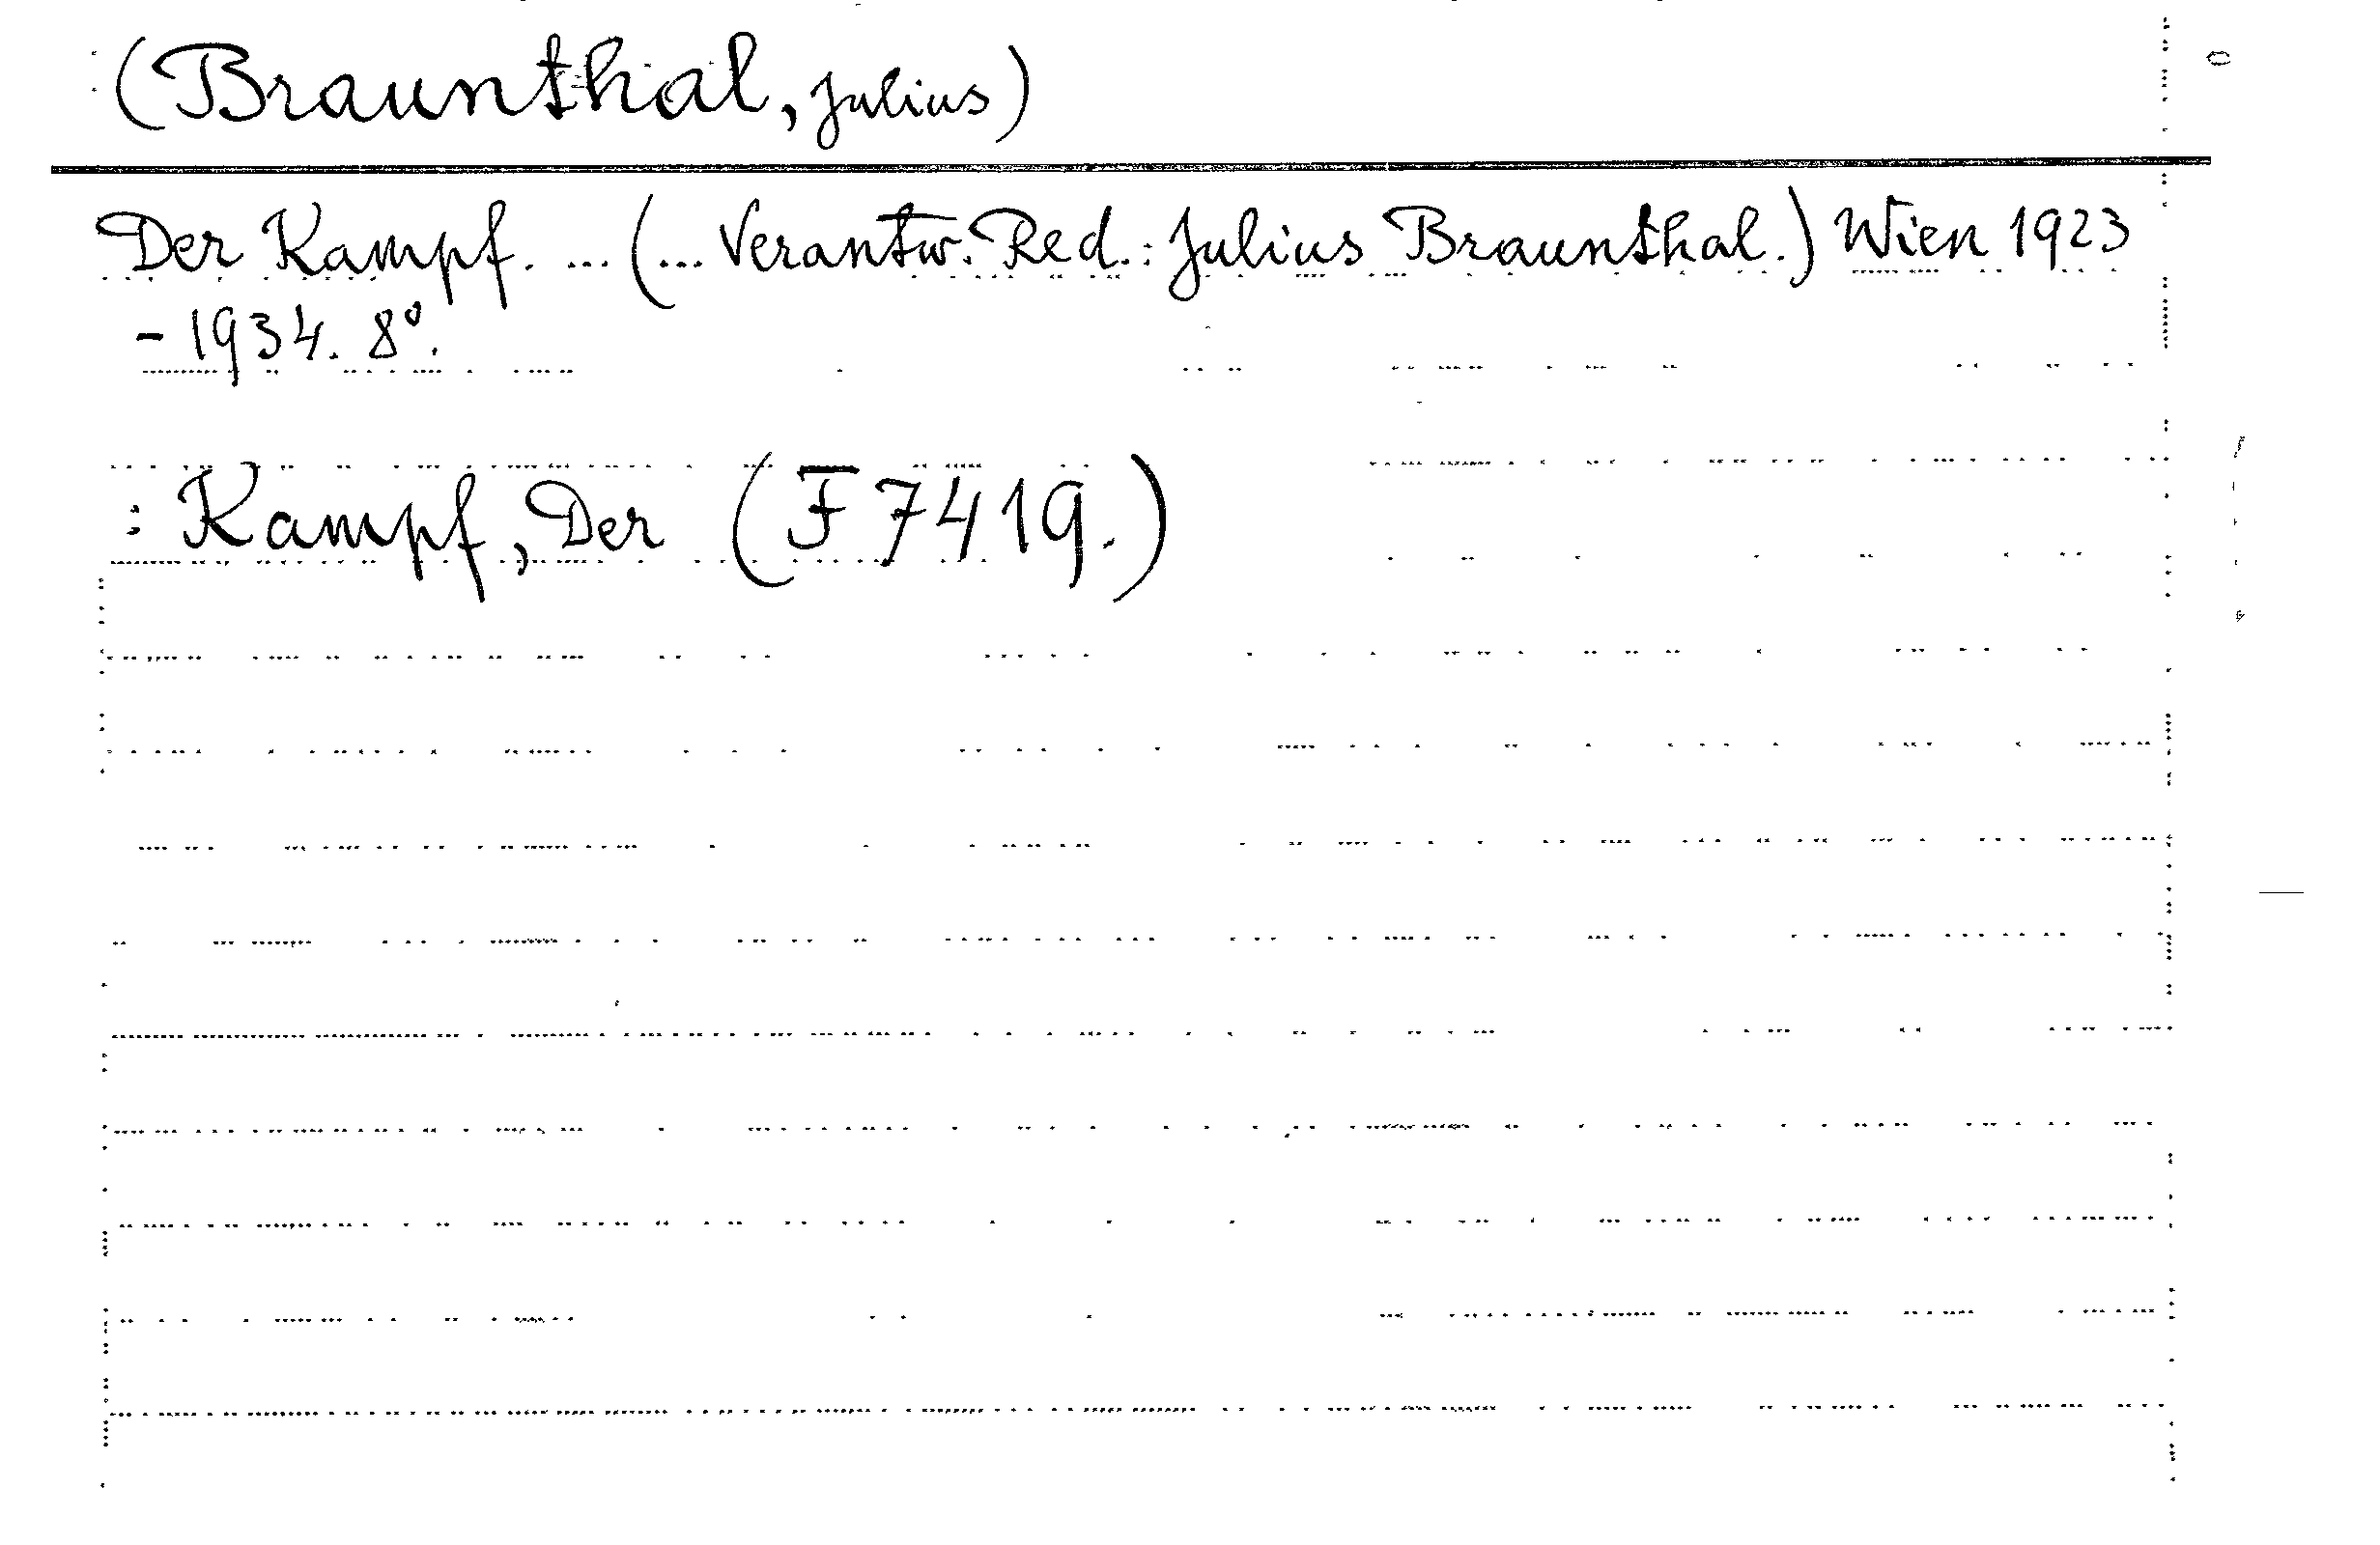 (Braunthal, Julius)
Der Kampf. ... (... Verantw. Red.: Julius Braunthal.) Wien 1923
- 1934. 8°.
: Kampf, Der (F 7419.)